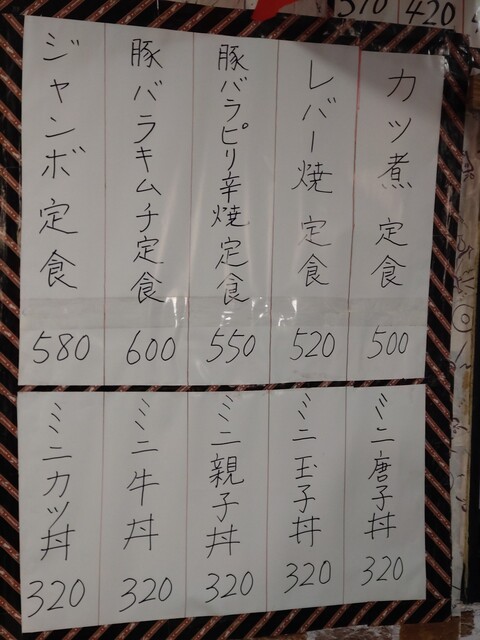 370 420
カツ煮定食
500
レバー焼定食
520
豚バラピリ辛焼定食
550
豚バラキムチ定食
600
ジャンボ定食
580
ミニ唐子丼
320
ミニ玉子丼
320
ミニ親子丼
320
ミニ牛丼
320
ミニカツ丼
320